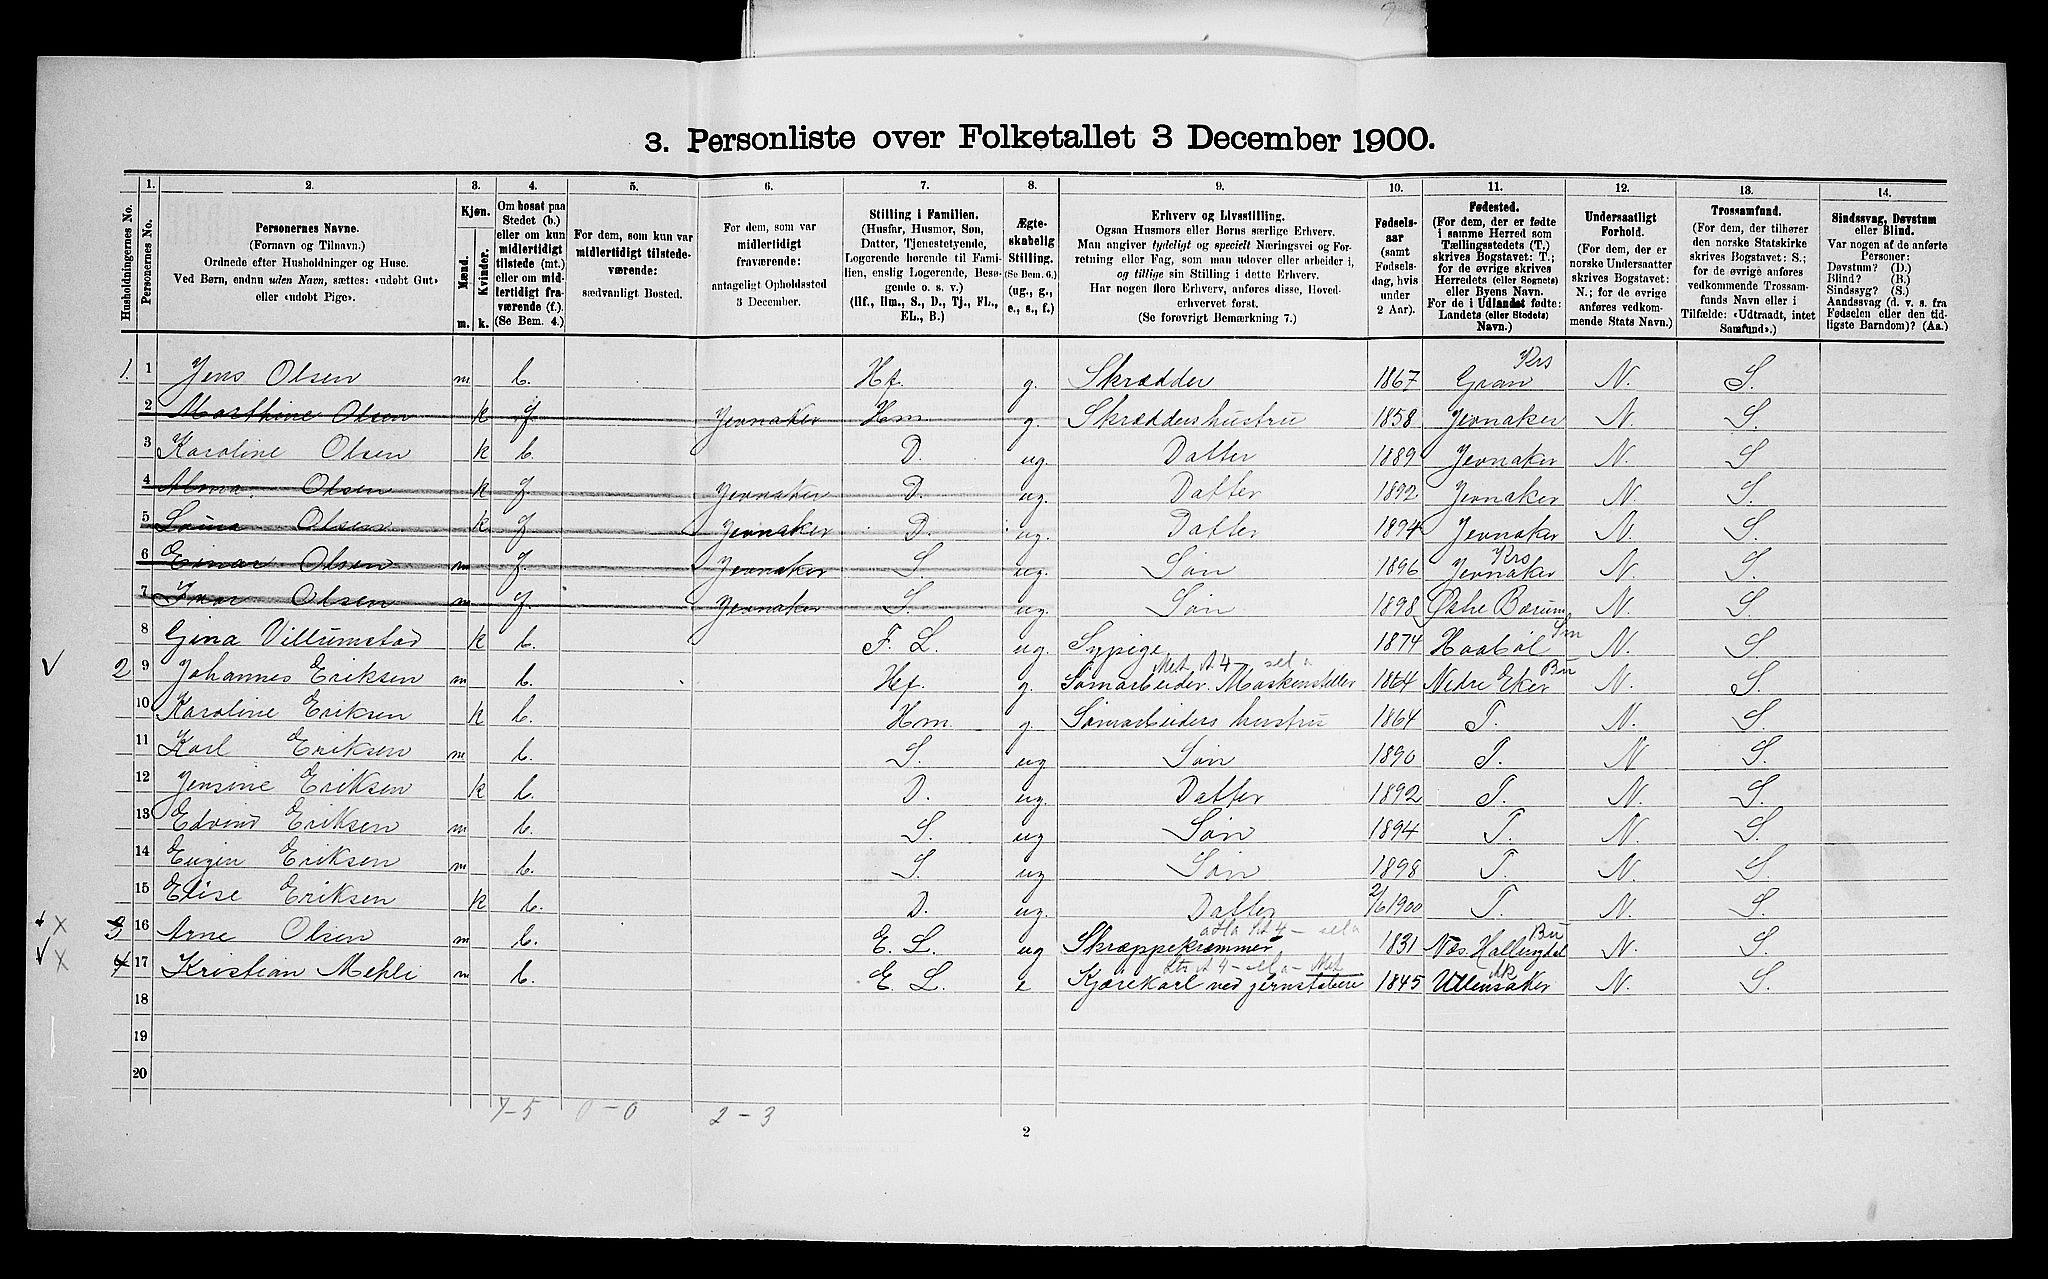 3. Personliste over Folketallet 3 December 1900.
Husholdningernes No.
1.
Personernes No.
2.
Personernes Navne.
(Fornavn og Tilnavn.)
Ordnede efter Husholdninger og Huse.
Ved Børn, endnu uden Navn, sættes: «udøbt Gut»
eller «udøbt Pige».
3.
Kjøn.
Mænd.
Kvinder.
m. k.
4.
Om bosat paa
Stedet (b.)
eller om kun
midlertidigt
tilstede (mt.)
eller om mid-
lertidigt fra-
værende (f.).
(Se Bem. 4.)
5.
For dem, som kun var
midlertidigt tilstede-
værende:
sædvanligt Bosted.
6.
For dem, som var
midlertidigt
fraværende:
antageligt Opholdssted
3 December.
7.
Stilling i Familien.
(Husfar, Husmor, Søn,
Datter, Tjenestetyende,
Logerende hørende til Fami-
lien, enslig Logerende, Besø-
gende o. s. v.)
(Hf., Hm., S., D., Tj., FL.,
EL., B.)
8.
Ægte-
skabelig
Stilling.
(Se Bem. 6.)
(ug., g.,
e., s., f.)
9.
Erhverv og Livsstilling.
Ogsaa Husmors eller Børns særlige Erhverv.
Man angiver tydeligt og specielt Næringsvei og For-
retning eller Fag, som man udover eller arbeider i,
og tillige sin Stilling i dette Erhverv.
Har nogen flere Erhverv, anføres disse, Hoved-
erhvervet først.
(Se forøvrigt Bemærkning 7.)
10.
Fødsels-
aar
(samt
Fødsels-
dag, hvis
under
2 Aar).
11.
Fødested.
(For dem, der er fødte
i samme Herred som
Tællingsstedets (T.)
skrives Bogstavet: T.;
for de øvrige skrives
Herredets (eller Sognets)
eller Byens Navn.
For de i Udlandet fødte:
Landets (eller Stedets)
Navn.)
12.
Undersaatligt
Forhold.
(For dem, der er
norske Undersaatter
skrives Bogstavet:
N.; for de øvrige
anføres vedkom-
mende Stats Navn.)
13.
Trossamfund.
(For dem, der tilhører
den norske Statskirke
skrives Bogstavet: S.;
for de øvrige anføres
vedkommende Trossam-
funds Navn eller i
Tilfælde: «Udtraadt, intet
Samfund».)
14.
Sindssvag, Døvstum
eller Blind.
Var nogen af de anførte
Personer:
Døvstum? (D.)
Blind? (B.)
Sindssyg? (S.)
Aandssvag (d. v. s. fra
Fødselen eller den tid-
ligste Barndom)? (Aa.)
1. 1 Jens Olsen m b. Hf. g. Skrædder 1867 Gran Krs N. S.
2 Marthine Olsen k f Jevnaker Hm g. Skræddershustru 1858 Jevnaker N. S.
3 Karoline Olsen k b. D. ug. Datter 1889 Jevnaker N. S
4 Alma Olsen k f Jevnaker D. ug. Datter 1892 Jevnaker N. S.
5 Olsen k f Jevnaker D. ug. Datter 1894 Jevnaker N. S.
6 Einar Olsen m f. Jevnaker S. ug. Søn 1896 Jevnaker Krs N. S.
7 Ivar Olsen m f. Jevnaker S. ug. Søn 1898 Østre Bærum N. S
8 Gina Villumstad k b. F. L. ug. Sypige 1874 Haabøl Sm N. S.
2 9 Johannes Eriksen m b. Hf. g. Sømarbeider. 1864 Nedre Eker Bu N. S.
10 Karoline Eriksen k b. Hm. g. Sømarbeiders hustru 1864 T. N. S.
11 Karl Eriksen m b. S. ug Søn 1890 T. N S.
12 Jensine Eriksen k b. D. ug. Datter 1892 T. N. S.
13 Edvind Eriksen m b. S. ug Søn 1894 T. N. S.
14 Eugen Eriksen m b. S. ug Søn 1898 T. N. S.
15 Elise Eriksen k b. D. ug. Datter 2/6 1900 T. N. S.
3 16 Arne Olsen m b. E. L. ug Skræppekræmmer 1831 Næs Hallingdal Bu N. S.
4 17 Kristian Mehli m b. E. L. e Kjørekarl ved jernstøberi 1845 Ullensaker Ak N. S.
18
19
20
7-5 0-0 2-3
2